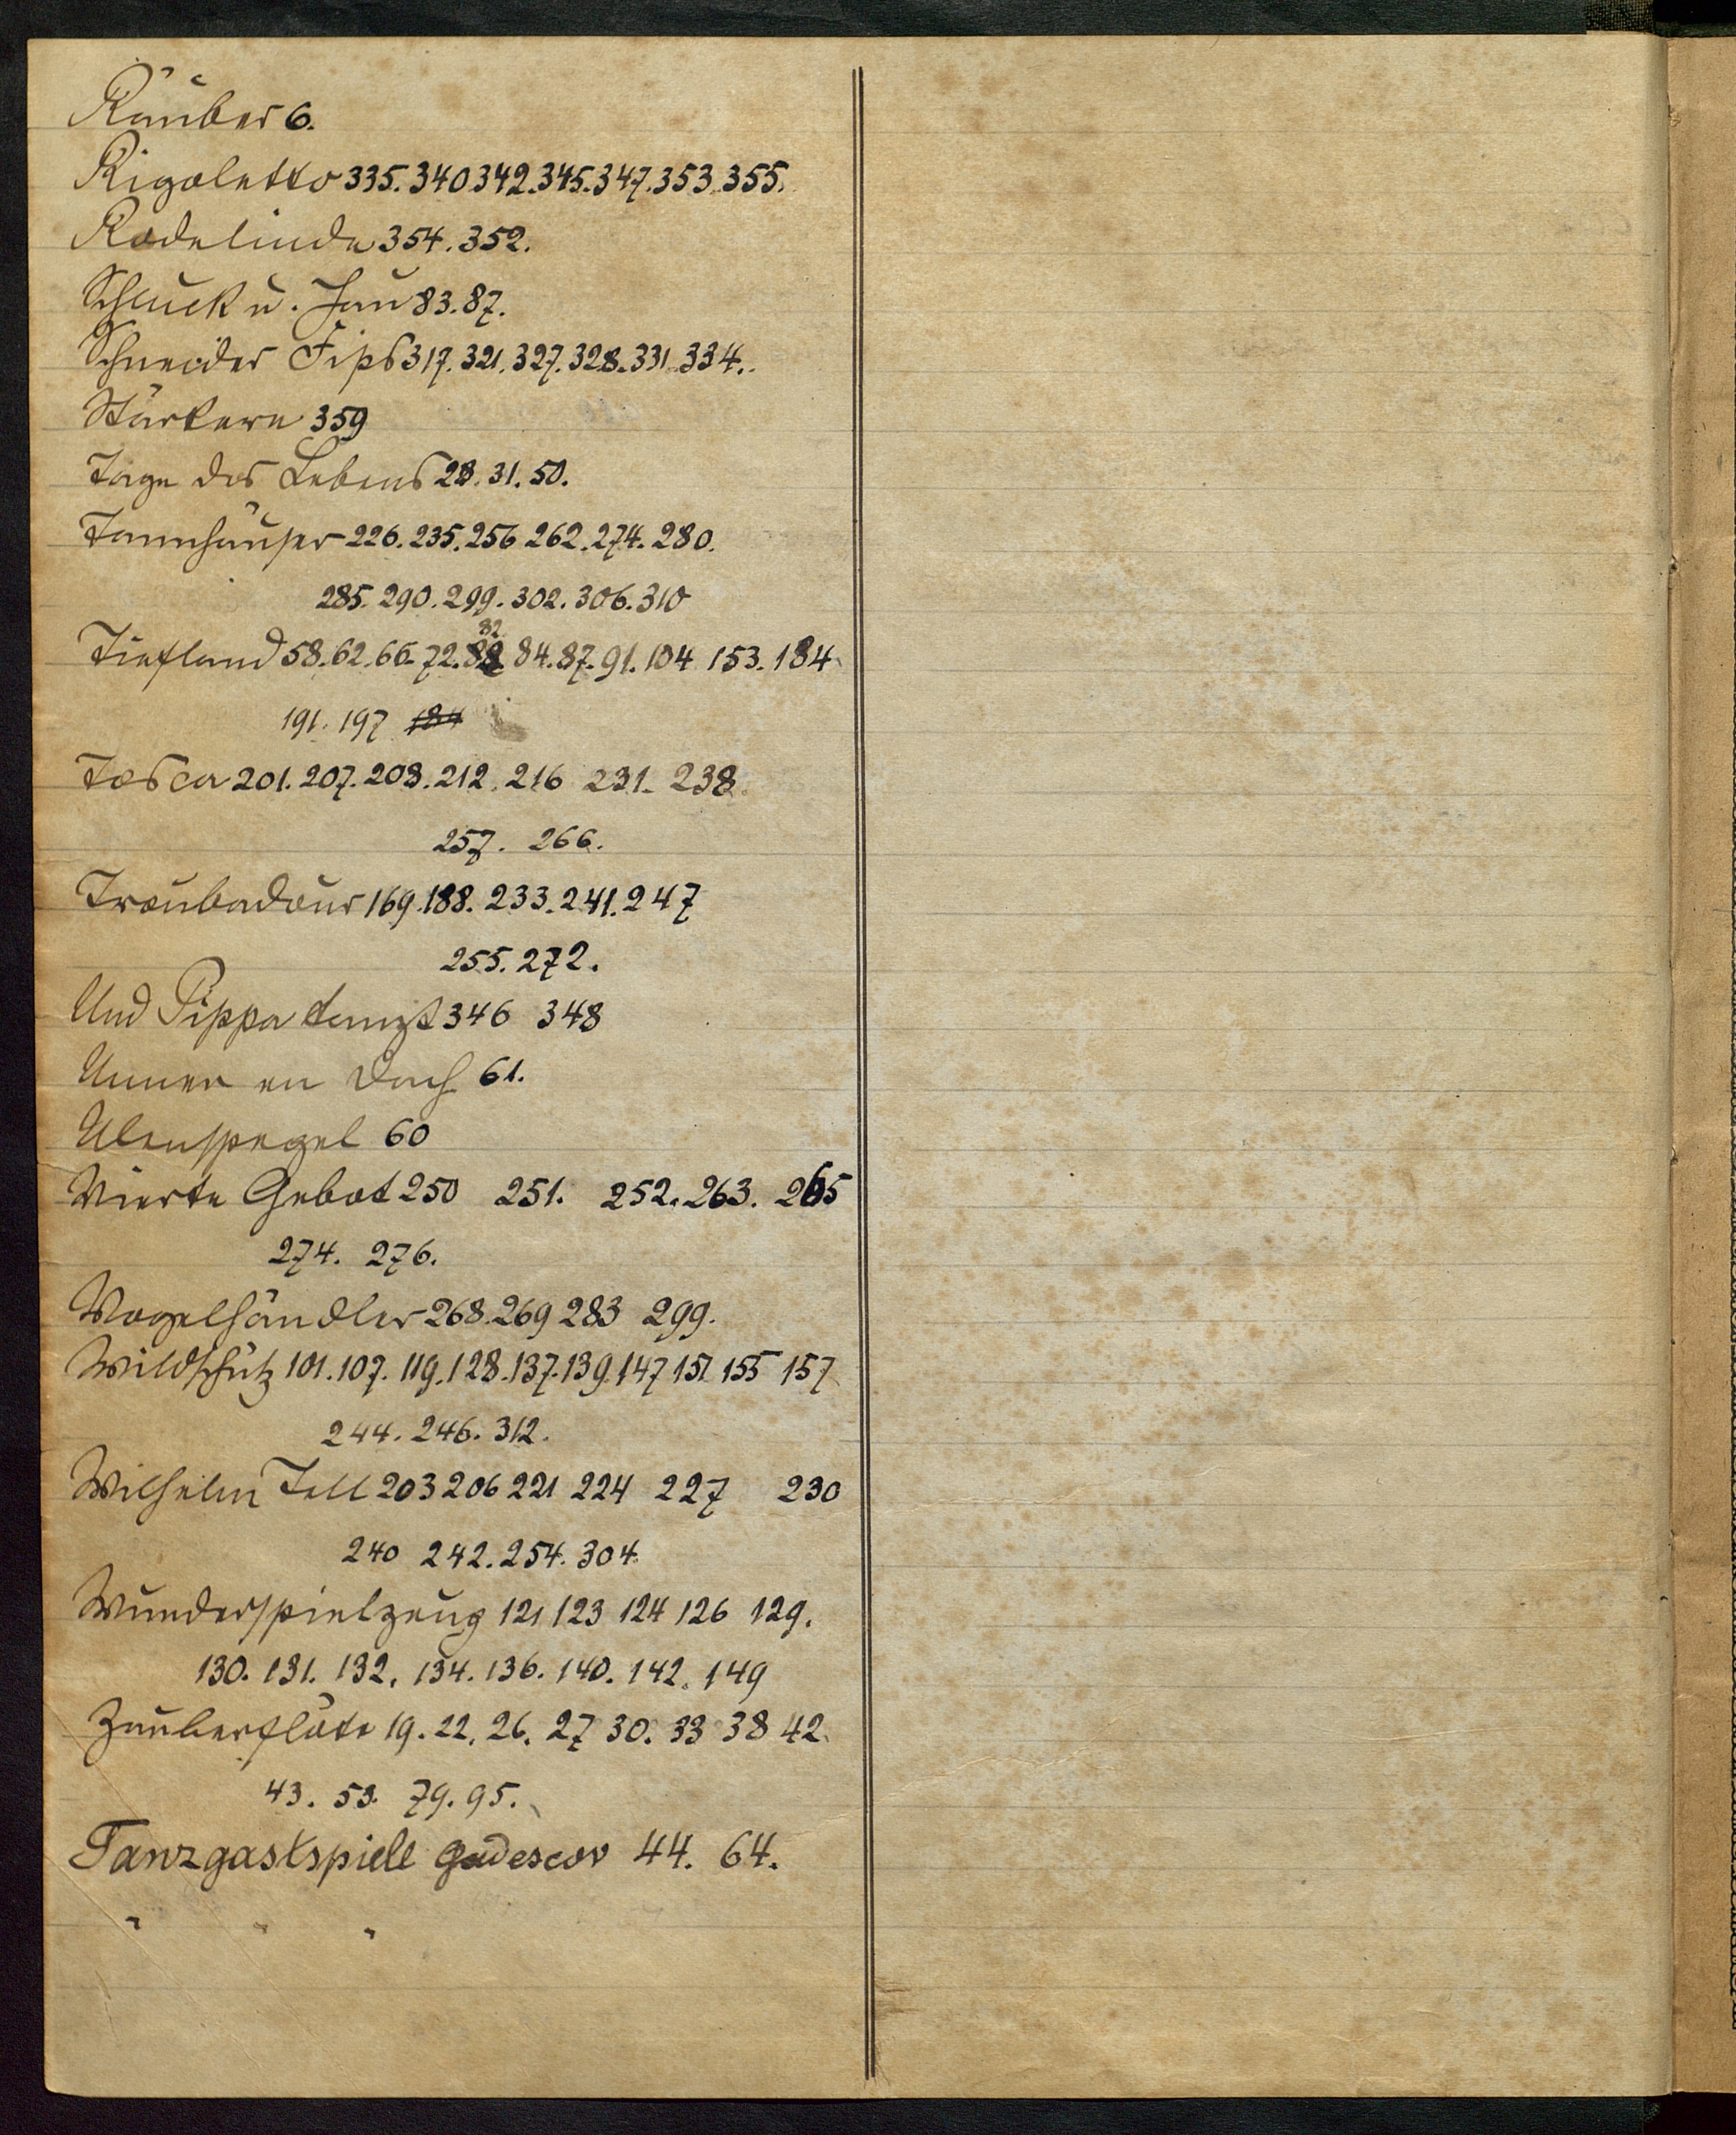 Räuber 6.
Rigoletto 335. 340 342. 345. 347. 353. 355.
Rodelinde 354. 352.
Schluck u. Jau 83. 87.
Schneider Fips 317. 321. 327. 328. 331. 334.
Stärkere 359
Tage des Lebens 28. 31. 50.
Tannhäuser 226. 235. 256 262. 274. 280.
285. 290. 299. 302. 306. 310
82
Tiefland 58. 62. 66. 72. 84. 87. 91. 104 153. 184
191. 197 184
Tosca 201. 207. 208. 212. 216 231. 238
257. 266.
Troubadour 169. 188. 233. 241. 247
255. 272.
Und Pippa tanzt 346 348
Unner en Dach 61.
Ulenspegel 60
Vierte Gebot 250 251. 252. 263. 265
274. 276.
Vogelhändler 268. 269 283 299.
Wildschütz 101. 107. 119. 128. 137. 139. 147 151 155 157
244. 246. 312.
Wilhelm Tell 203 206 221 224 227 230
240 242. 254. 304.
Wunderspielzeug 121 123 124 126 129.
130. 131. 132. 134. 136. 140. 142. 149
Zauberflöte 19. 22. 26. 27 30. 33 38 42.
43. 53. 79. 95.
Tanzgastspiele Gadescov 44. 64.
" " "